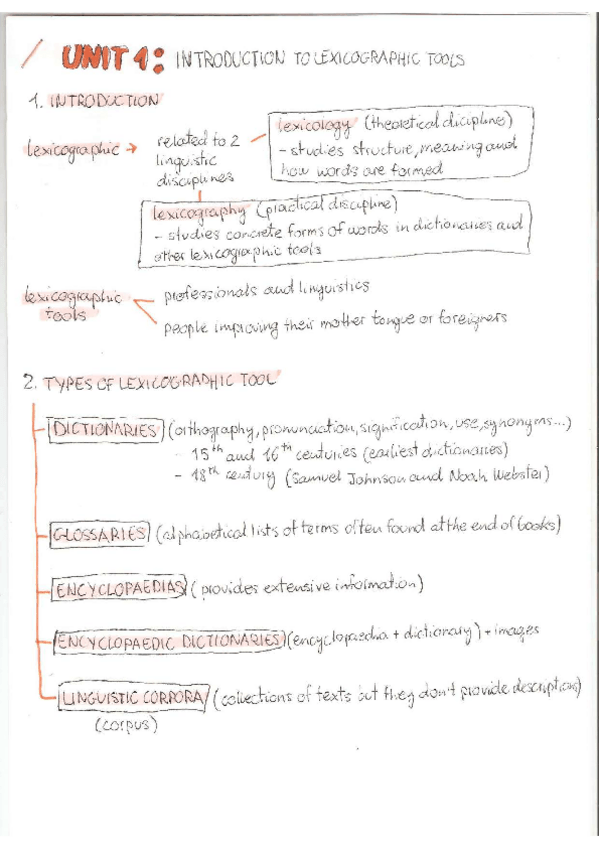 UNIT 1: INTRODUCTION TO LEXICOGRAPHIC TOOLS
1. INTRODUCTION
lexicographic → related to 2
linguistic
disciplines
lexicology (theoretical discipline)
- studies structure, meaning and
how words are formed
lexicography (practical discipline)
- studies concrete forms of words in dictionaries and
other lexicographic tools
lexicographic
tools
professionals and linguistics
people improving their mother tongue or foreigners
2. TYPES OF LEXICOGRAPHIC TOOL
DICTIONARIES (orthography, pronunciation, signification, use, synonyms...)
- 15th and 16th centuries (earliest dictionaries)
- 18th century (Samuel Johnson and Noah Webster)
GLOSSARIES (alphabetical lists of terms often found at the end of books)
ENCYCLOPAEDIAS (provides extensive information)
ENCYCLOPAEDIC DICTIONARIES (encyclopaedia + dictionary) + images
LINGUISTIC CORPORA (collections of texts but they don't provide descriptions)
(corpus)